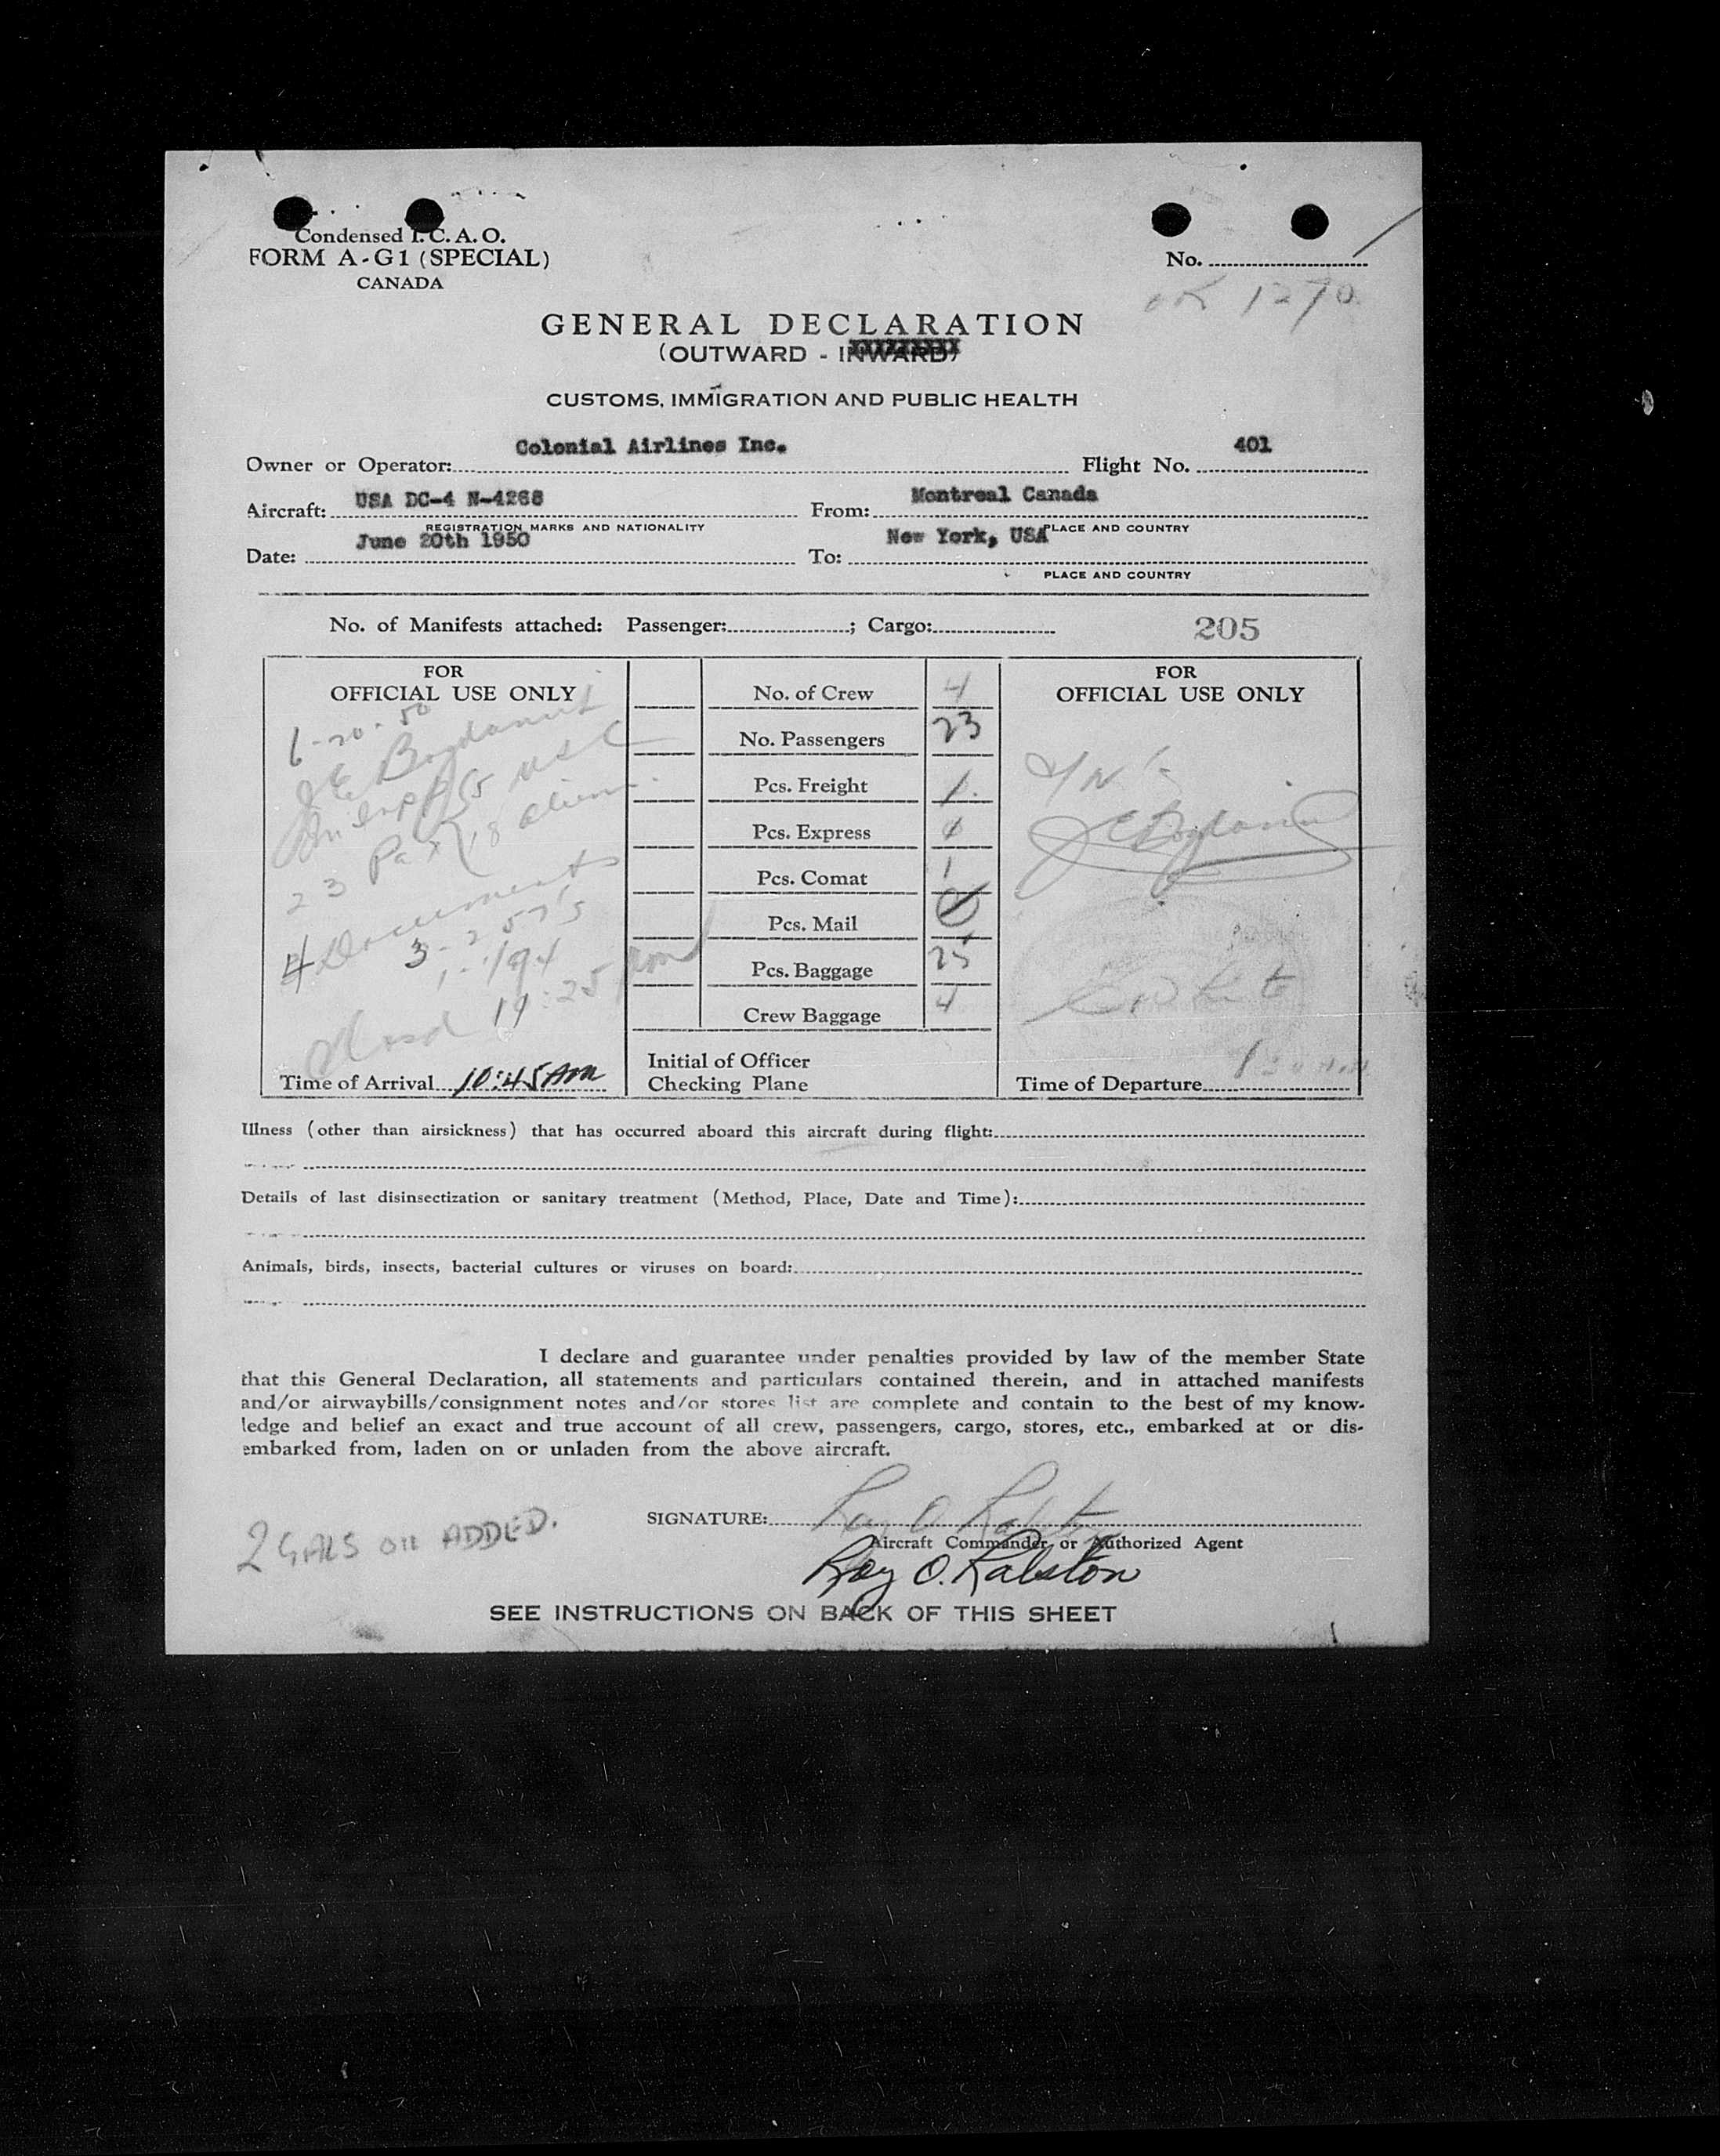 Condensed I. C. A. O.
FORM A-G1 (SPECIAL)
CANADA
No.
OK 1270
GENERAL DECLARATION
(OUTWARD - INWARD)
CUSTOMS, IMMIGRATION AND PUBLIC HEALTH
Owner or Operator: Colonial Airlines Inc. Flight No. 401
Aircraft: USA DC-4 N-4268 From: Montreal Canada
REGISTRATION MARKS AND NATIONALITY PLACE AND COUNTRY
Date: June 20th 1950 To: New York, USA
PLACE AND COUNTRY
No. of Manifests attached: Passenger: ; Cargo: 205
FOR
OFFICIAL USE ONLY
6-20-50
23 Pax
Documents
3 - 257's
1 - 194
Time of Arrival 10:45 AM
No. of Crew 4
No. Passengers 23
Pcs. Freight 1
Pcs. Express
Pcs. Comat 1
Pcs. Mail 0
Pcs. Baggage 25
Crew Baggage 4
Initial of Officer
Checking Plane
FOR
OFFICIAL USE ONLY
Time of Departure
Illness (other than airsickness) that has occurred aboard this aircraft during flight:
Details of last disinsectization or sanitary treatment (Method, Place, Date and Time):
Animals, birds, insects, bacterial cultures or viruses on board:
I declare and guarantee under penalties provided by law of the member State
that this General Declaration, all statements and particulars contained therein, and in attached manifests
and/or airwaybills/consignment notes and/or stores list are complete and contain to the best of my know-
ledge and belief an exact and true account of all crew, passengers, cargo, stores, etc., embarked at or dis-
embarked from, laden on or unladen from the above aircraft.
2 GALS OIL ADDED.
SIGNATURE: Roy O Ralston
Aircraft Commander or Authorized Agent
Roy O. Ralston
SEE INSTRUCTIONS ON BACK OF THIS SHEET